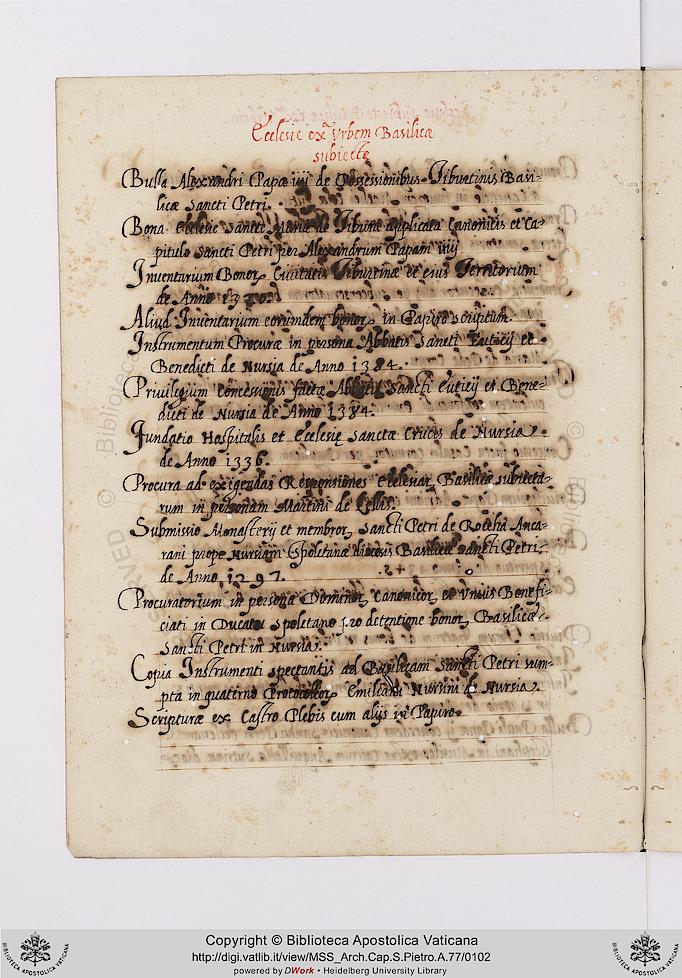 Ecclesie ex Vrbem Basilicæ
subiectæ
Bulla Alexandri Papæ iiij de Possessionibus Tiburtinis Basi-
licæ Sancti Petri.
Bona Ecclesie Sanctæ Mariæ de Tibure applicata Canonicis et Ca-
pitulo Sancti Petri per Alexandrum Papam iiij
Inventarium Bonor, Ciuitatis Tiburtinæ et eius Territorium
de Anno
Aliud Inventarium eorumdem bonor, in Papiro scriptum.
Instrumentum Procuræ in persona Abbatis Sancti Euticij et
Benedicti de Nursia de Anno 1384.
Privilegium concessionis factæ Abbati Sancti Euticij et Bene-
dicti de Nursia de Anno 1384.
Fundatio Hospitalis et Ecclesię Sanctæ Crucis de Nursia
de Anno 1336.
Procura ad exigendas Responsiones Ecclesiar, Basilicæ subiecta-
rum in personam Martini de Cellis.
Submissio Monasterij et membror, Sancti Petri de Rocchæ Anca-
rani prope Nursiam Spoletanæ diocesis Basilicæ Sancti Petri
de Anno 1297.
Procuratorium in persona Dominor, Canonicor, et Vnius Benefi-
ciati in Ducatu Spoletano pro detentione bonor, Basilicæ
Sancti Petri in Nursia.
Copia Instrumenti spectantis ad Basilicam Sancti Petri sum-
pta in quaterno Protocollor, Emiliani Nursini de Nursia.
Scripturæ ex Castro Plebis cum alijs in Papiro.
Copyright © Biblioteca Apostolica Vaticana
http://digi.vatlib.it/view/MSS_Arch.Cap.S.Pietro.A.77/0102
powered by DWork • Heidelberg University Library